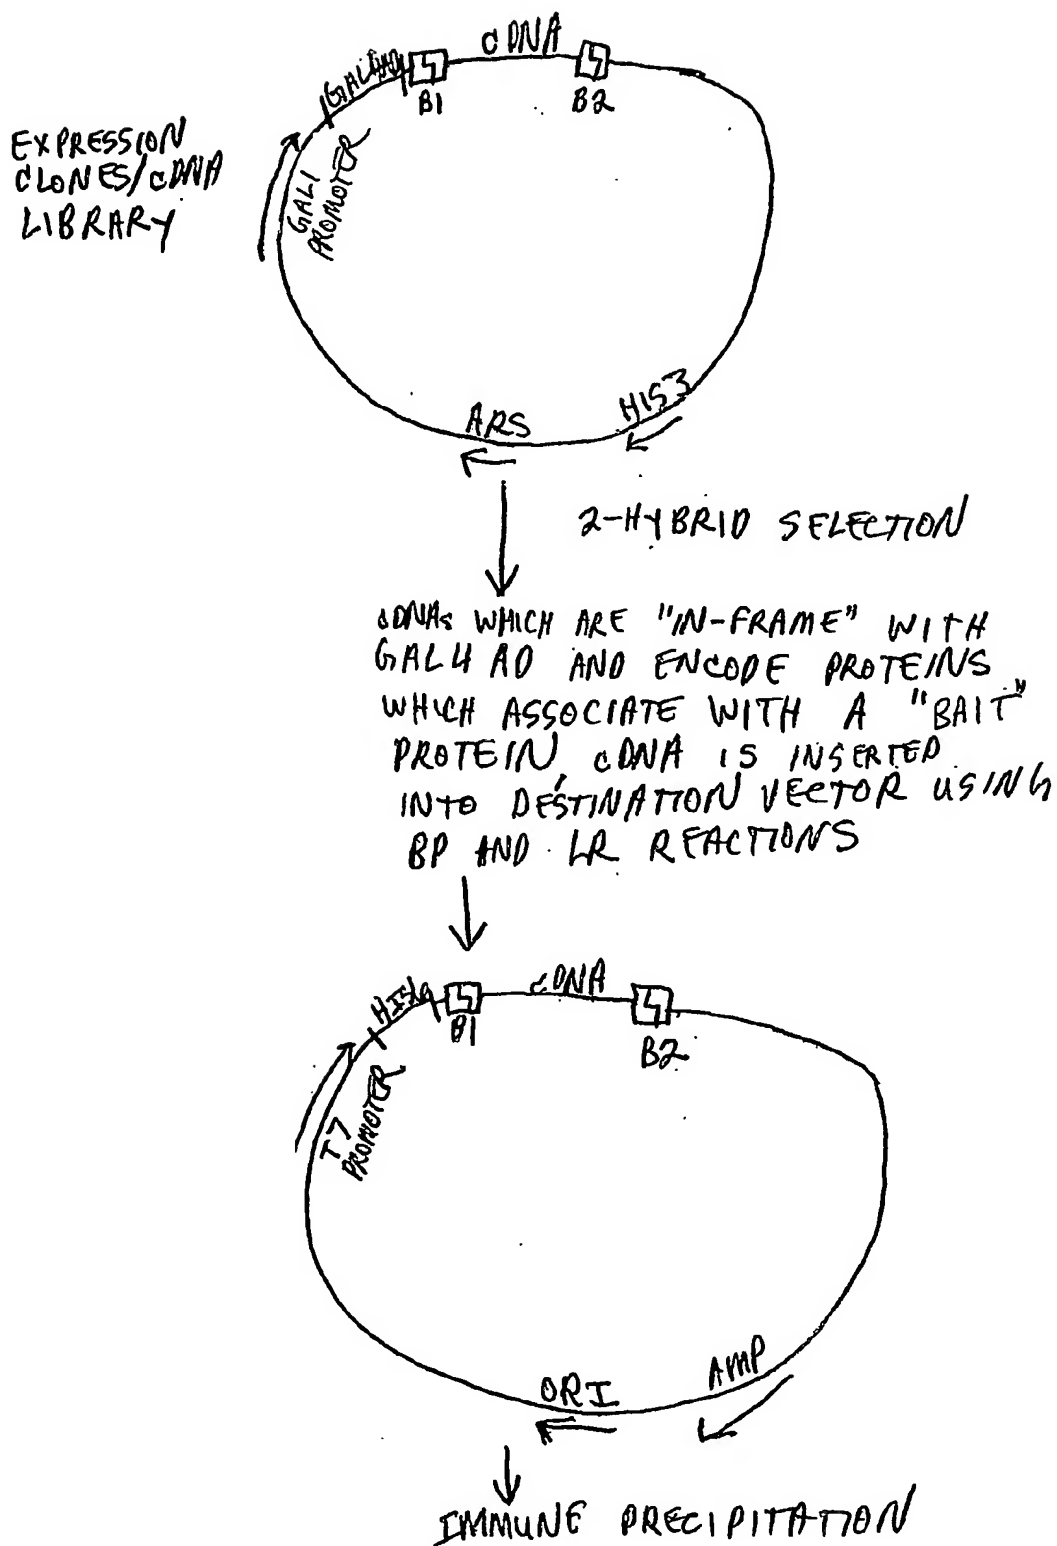 cDNA
B1
B2
EXPRESSION
CLONES/cDNA
LIBRARY
GAL1
PROMOTER
ARS
HIS3
2-HYBRID SELECTION
cDNAs WHICH ARE "IN-FRAME" WITH
GAL4 AD AND ENCODE PROTEINS
WHICH ASSOCIATE WITH A "BAIT"
PROTEIN, cDNA IS INSERTED
INTO DESTINATION VECTOR USING
BP AND LR REACTIONS
cDNA
B1
B2
T7
PROMOTER
ORI
AMP
IMMUNE PRECIPITATION